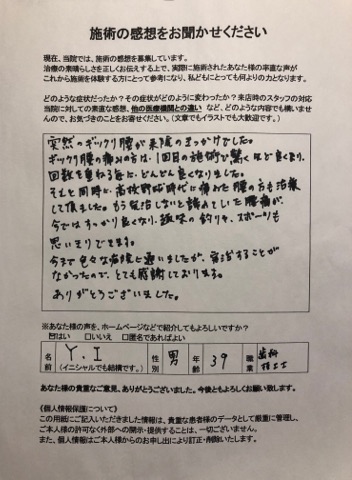 施術の感想をお聞かせください
現在、当院では、施術の感想を募集しています。
治療の素晴らしさを正しくお伝えする上で、実際に施術されたあなた様の率直な声が
これから施術を体験する方にとって参考になり、私どもにとっても何よりの力となります。
どのような症状だったか?その症状がどのように変わったか?来店時のスタッフの対応
当院に対しての素直な感想、他の医療機関との違い など、どのような内容でも構いませ
んので、お気づきのことをお寄せください。(文章でもイラストでも大歓迎です。)
突然のギックリ腰が来院のきっかけでした。
ギックリ腰の痛みの方は、1回目の施術で驚くほど良くなり、
回数を重ねる毎に、どんどん良くなりました。
それと同時に、高校野球時代に痛めた腰の方も治療
して頂きました。もう完治しないと諦めていた腰痛が、
今ではすっかり良くなり、趣味の釣りや、スポーツも
思いきりできます。
今まで色々な病院に通いましたが、完治することが
なかったので、とても感謝しております。
ありがとうございました。
※あなた様の声を、ホームページなどで紹介してもよろしいですか?
☑はい □いいえ □匿名であればよい
名前 Y.I (イニシャルでも結構です。) 性別 男 年齢 39 職業 歯科技工士
あなた様の貴重なご意見、ありがとうございました。今後ともよろしくお願い致します。
《個人情報保護について》
この用紙にご記入いただきました情報は、貴重な患者様のデータとして厳重に管理し、
ご本人様の許可なく外部への開示・提供することは、一切ございません。
また、個人情報はご本人様からのお申し出により訂正・削除いたします。